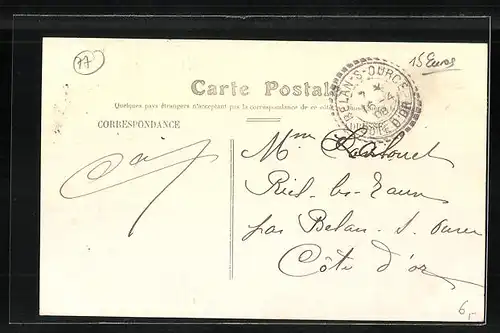 77
15 Euros
Carte Postale
Quelques pays étrangers n'acceptant pas la correspondance de ce côté
CORRESPONDANCE
BELAN-S-OURCE
16-4
08
CÔTE D'OR
Mme
Riel-les-Eaux
par Belan-s-Ource
Côte d'or
6,-